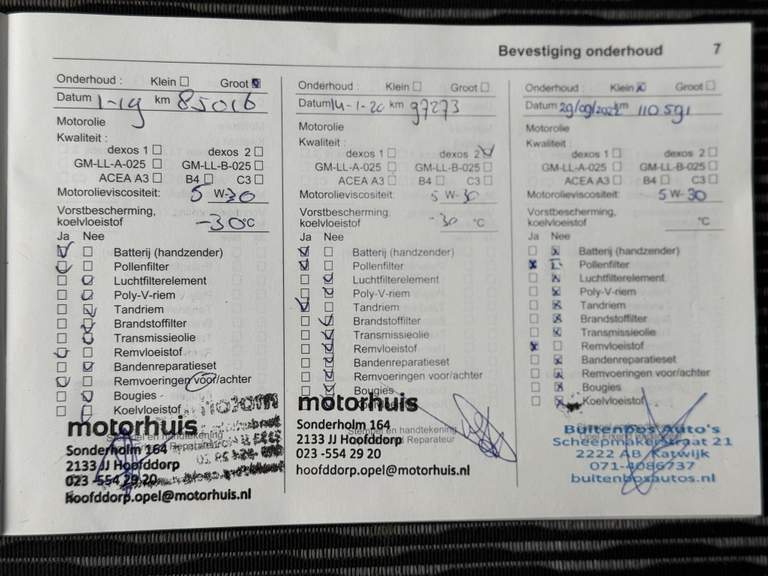 Bevestiging onderhoud 7
Onderhoud : Klein Groot
Datum 1-19 km 85016
Motorolie
Kwaliteit :
dexos 1 dexos 2
GM-LL-A-025 GM-LL-B-025
ACEA A3 B4 C3
Motorolieviscositeit: 5 W-30
Vorstbescherming,
koelvloeistof -30 °C
Ja Nee
Batterij (handzender)
Pollenfilter
Luchtfilterelement
Poly-V-riem
Tandriem
Brandstoffilter
Transmissieolie
Remvloeistof
Bandenreparatieset
Remvoeringen voor/achter
Bougies
Koelvloeistof
motorhuis
Stempel en handtekening
Sonderholm 164
Reparateur
2133 JJ Hoofddorp
023 -554 29 20
hoofddorp.opel@motorhuis.nl
Onderhoud : Klein Groot
Datum 14-1-20 km 97273
Motorolie
Kwaliteit :
dexos 1 dexos 2
GM-LL-A-025 GM-LL-B-025
ACEA A3 B4 C3
Motorolieviscositeit: 5 W-30
Vorstbescherming,
koelvloeistof -30 °C
Ja Nee
Batterij (handzender)
Pollenfilter
Luchtfilterelement
Poly-V-riem
Tandriem
Brandstoffilter
Transmissieolie
Remvloeistof
Bandenreparatieset
Remvoeringen voor/achter
Bougies
motorhuis
Sonderholm 164
Stempel en handtekening
2133 JJ Hoofddorp
Reparateur
023 -554 29 20
hoofddorp.opel@motorhuis.nl
Onderhoud : Klein Groot
Datum 29/09/2022 km 110591
Motorolie
Kwaliteit :
dexos 1 dexos 2
GM-LL-A-025 GM-LL-B-025
ACEA A3 B4 C3
Motorolieviscositeit: 5 W-30
Vorstbescherming,
koelvloeistof °C
Ja Nee
Batterij (handzender)
Pollenfilter
Luchtfilterelement
Poly-V-riem
Tandriem
Brandstoffilter
Transmissieolie
Remvloeistof
Bandenreparatieset
Remvoeringen voor/achter
Bougies
Koelvloeistof
Buitenbos Auto's
Scheepmakerstraat 21
2222 AB Katwijk
071-4086737
buitenbosautos.nl